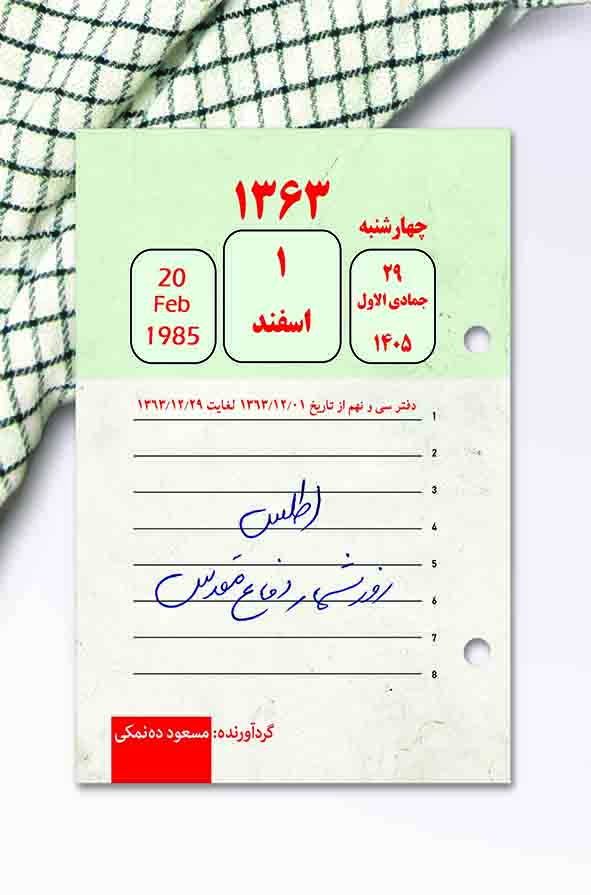 ۱۳۶۳
چهارشنبه
۲۹
جمادی الاول
۱۴۰۵
۱
اسفند
20
Feb
1985
دفتر سی و نهم از تاریخ ۱۳۶۳/۱۲/۰۱ لغایت ۱۳۶۳/۱۲/۲۹
1
2
3
4
5
6
7
8
اطلس
روزشمار دفاع مقدس
گردآورنده: مسعود ده‌نمکی